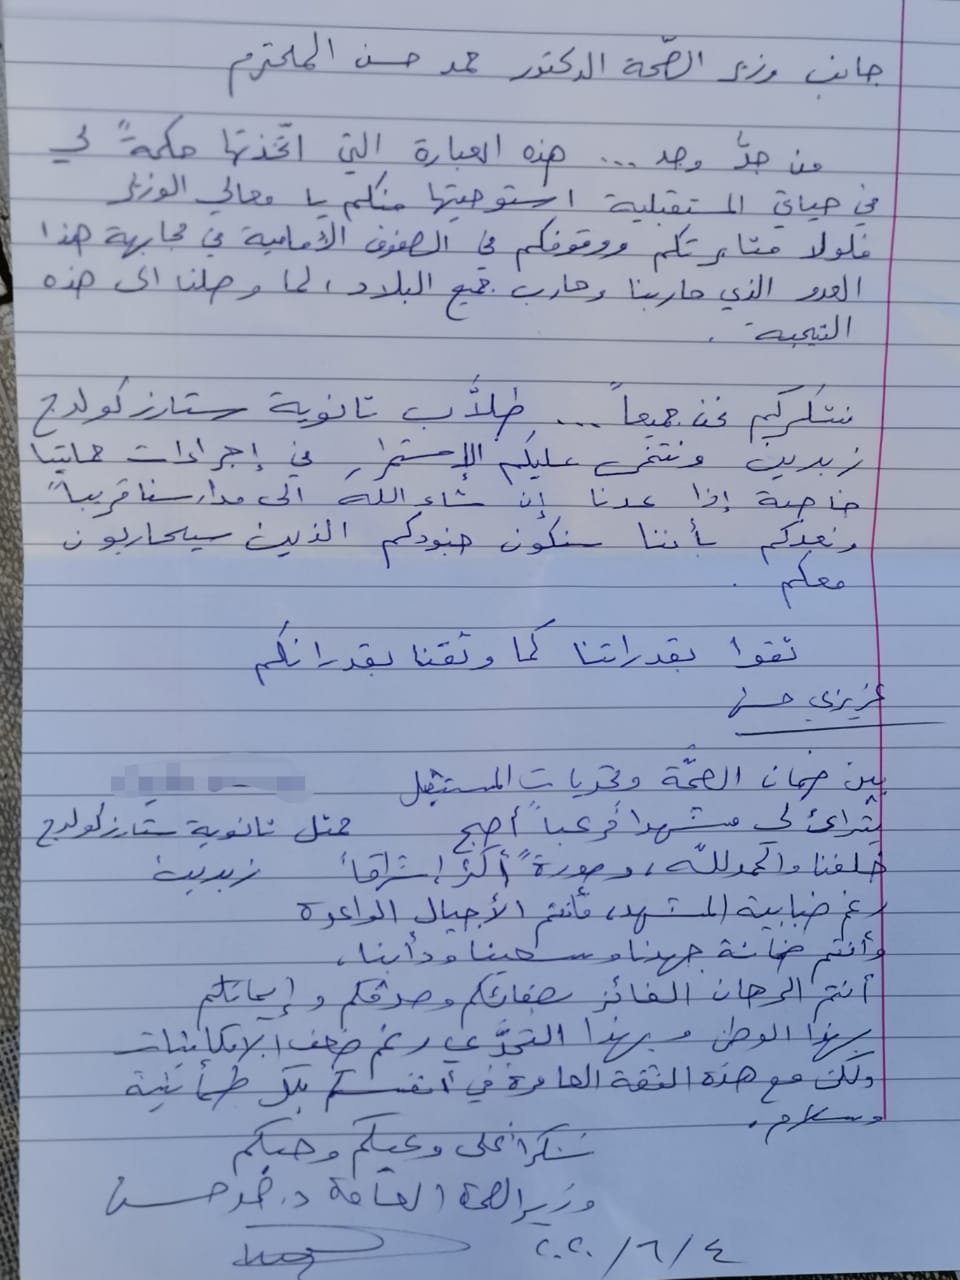 جانب وزير الصحّة الدكتور حمد حسن المحترم
من جدَّ وجد ... هذه العبارة التي اتّخذتها حكمةً لي
في حياتي المستقبلية استوحيتها منكم يا معالي الوزير
فلولا مثابرتكم ووقوفكم في الصفوف الأمامية في مجابهة هذا
العدو الذي حاربنا وحارب جميع البلاد، لما وصلنا الى هذه
النتيجة .
نشكركم نحن جميعاً ... طلّاب ثانوية ستارز كولدج
زبدين ونتمنى عليكم الإستمرار في إجراءات حمايتنا
خاصة إذا عدنا إن شاء الله الى مدارسنا قريباً
ونعدكم بأننا سنكون جنودكم الذين سيحاربون
معكم .
ثقوا بقدراتنا كما وثقنا بقدراتكم
عزيزي حسن
بين ضمان الصحّة وتحديات المستقبل
يتراءى لي مشهداً مرعباً أصبح
ممثل ثانوية ستارز كولدج
خلفنا والحمدلله، وصورةً أكثر إشراقاً
زبدين
رغم ضبابية المشهد، فأنتم الأجيال الواعدة
وأنتم ضمانة جهدنا وسعينا ودأبنا،
أنتم الرهان الفائز بصفائكم وصدقكم وإيمانكم
بهذا الوطن وبهذا التحدّي رغم ضعف الإمكانيات
ولكن مع هذه الثقة العامرة في أنفسكم بكل طمأنينة
وسلام.
شكراً على وعيكم وحبكم
وزير الصحة العامة د. حمد حسن
٤/٦/٢٠٢٠